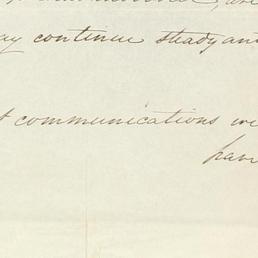 ay continue steady and
communications we
have